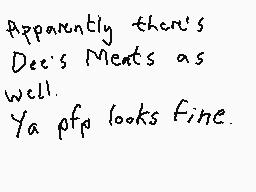 Apparently there's
Dee's Meats as
well.
Ya pfp looks fine.